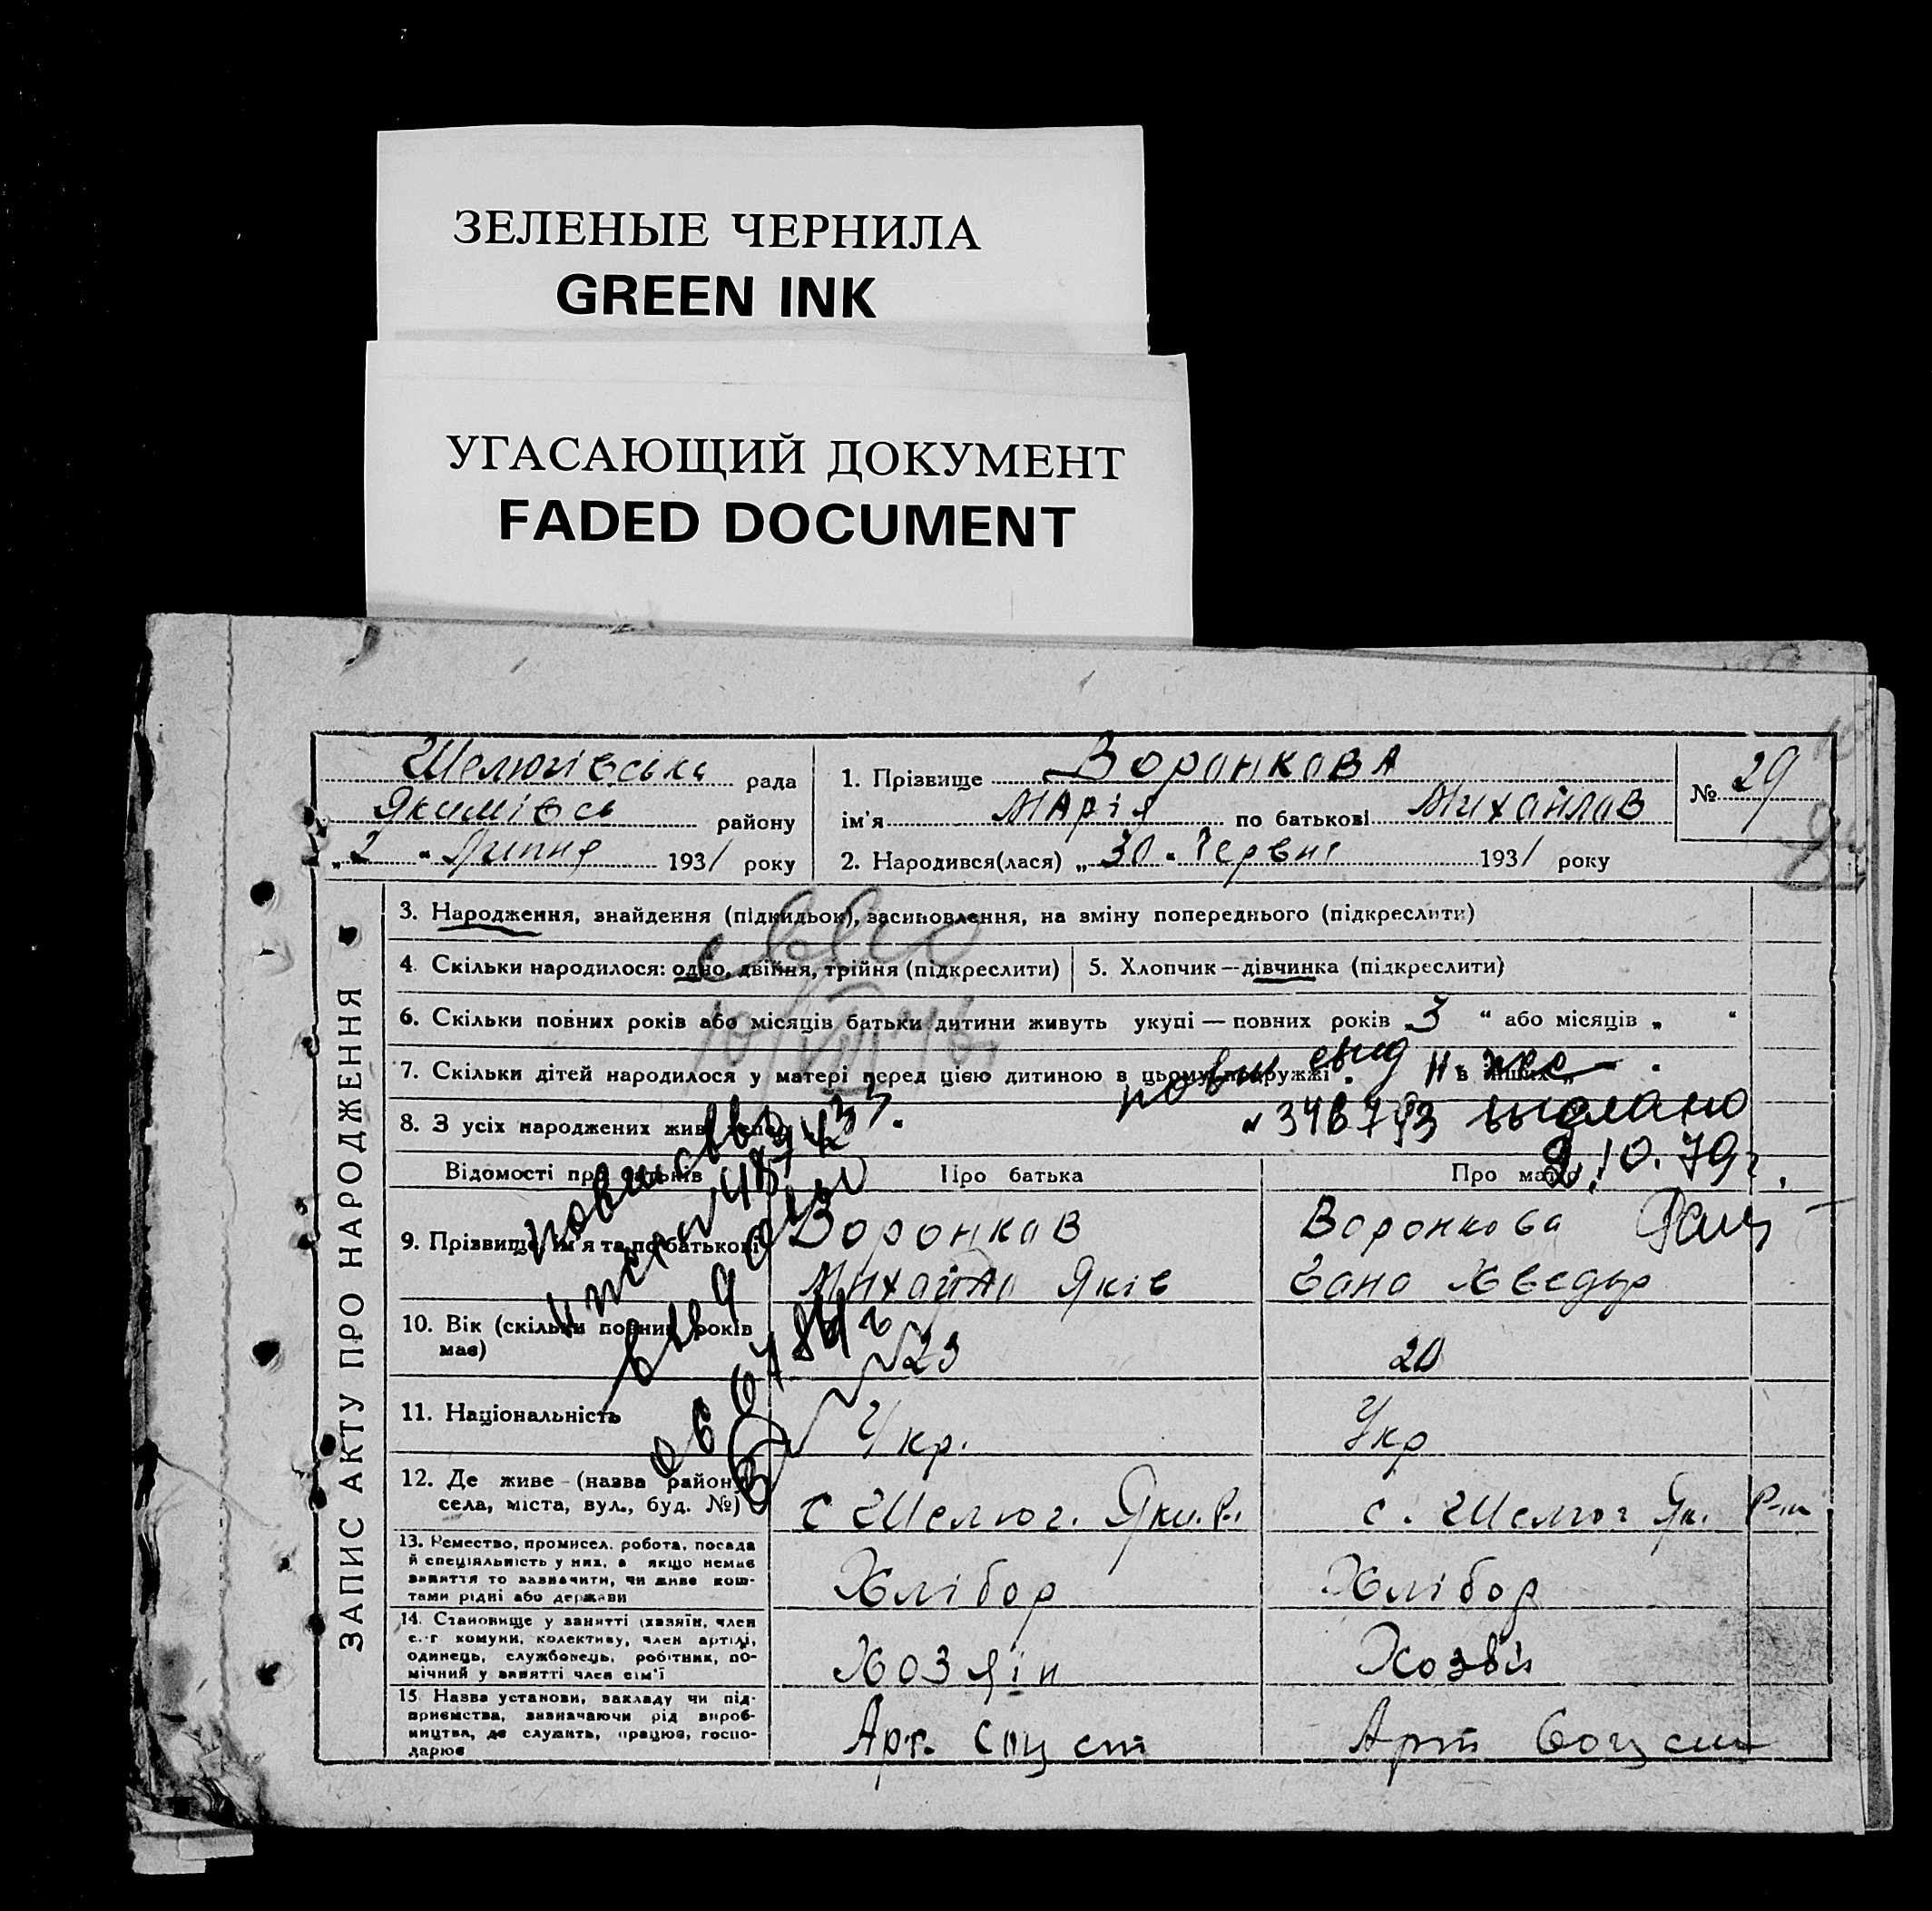 ЗЕЛЕНЫЕ ЧЕРНИЛА
GREEN INK
УГАСАЮЩИЙ ДОКУМЕНТ
FADED DOCUMENT
Шелюгівська рада
Якимівсь району
„ 2 " Липня 1931 року
1. Прізвище Воронкова
ім'я Марія по батькові Михайлов
2. Народився(лася) „ 30 " Червня 1931 року
№ 29
ЗАПИС АКТУ ПРО НАРОДЖЕННЯ
3. Народження, знайдення (підкидьок), засиновлення, на зміну попереднього (підкреслити)
4. Скільки народилося: одно, двійня, трійня (підкреслити)
5. Хлопчик—дівчинка (підкреслити)
6. Скільки повних років або місяців батьки дитини живуть укупі — повних років „ 3 " або місяців „ "
7. Скільки дітей народилося у матері перед цією дитиною в цьому подружжі в інших
8. З усіх народжених живі тепер
№ 348793 выслано
9.10.79г.
Відомості про батьків
Про батька
Про матір
9. Прізвище, ім'я та по батькові
Воронков
Михайло Яків
Воронкова
Хведір
10. Вік (скільки повних років має)
23
20
11. Національність
Укр.
Укр
12. Де живе — (назва району, села, міста, вул., буд. №)
с Шелюг. Яки. Р.
с. Шелюг Як. Р-ну
13. Ремество, промисел, робота, посада
й спеціяльність у них, а якщо немає
заняття то зазначити, чи живе кош-
тами рідні або держави
Хлібор
Хлібор
14. Становище у занятті (хазяїн, член
с.-г комуни, колективу, член артілі,
одинець, службовець, робітник, по-
мічний у занятті член сім'ї
Хозяїн
15. Назва установи, закладу чи під-
приємства, зазначаючи рід вироб-
ництва, де служить, працює, госпо-
дарює
Арт.
Арт